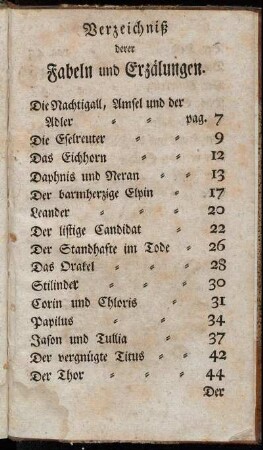 Verzeichniß
derer
Fabeln und Erzälungen.
Die Nachtigall, Amsel und der
Adler = = pag. 7
Die Eselreuter = = 9
Das Eichhorn = = 12
Daphnis und Neran = = 13
Der barmherzige Elpin = 17
Leander = = = 20
Der listige Candidat = 22
Der Standhafte im Tode = 26
Das Orakel = = = 28
Stilinder = = = 30
Corin und Chloris = 31
Papilus = = = 34
Jason und Tullia = 37
Der vergnügte Titus = = 42
Der Thor = = = 44
Der